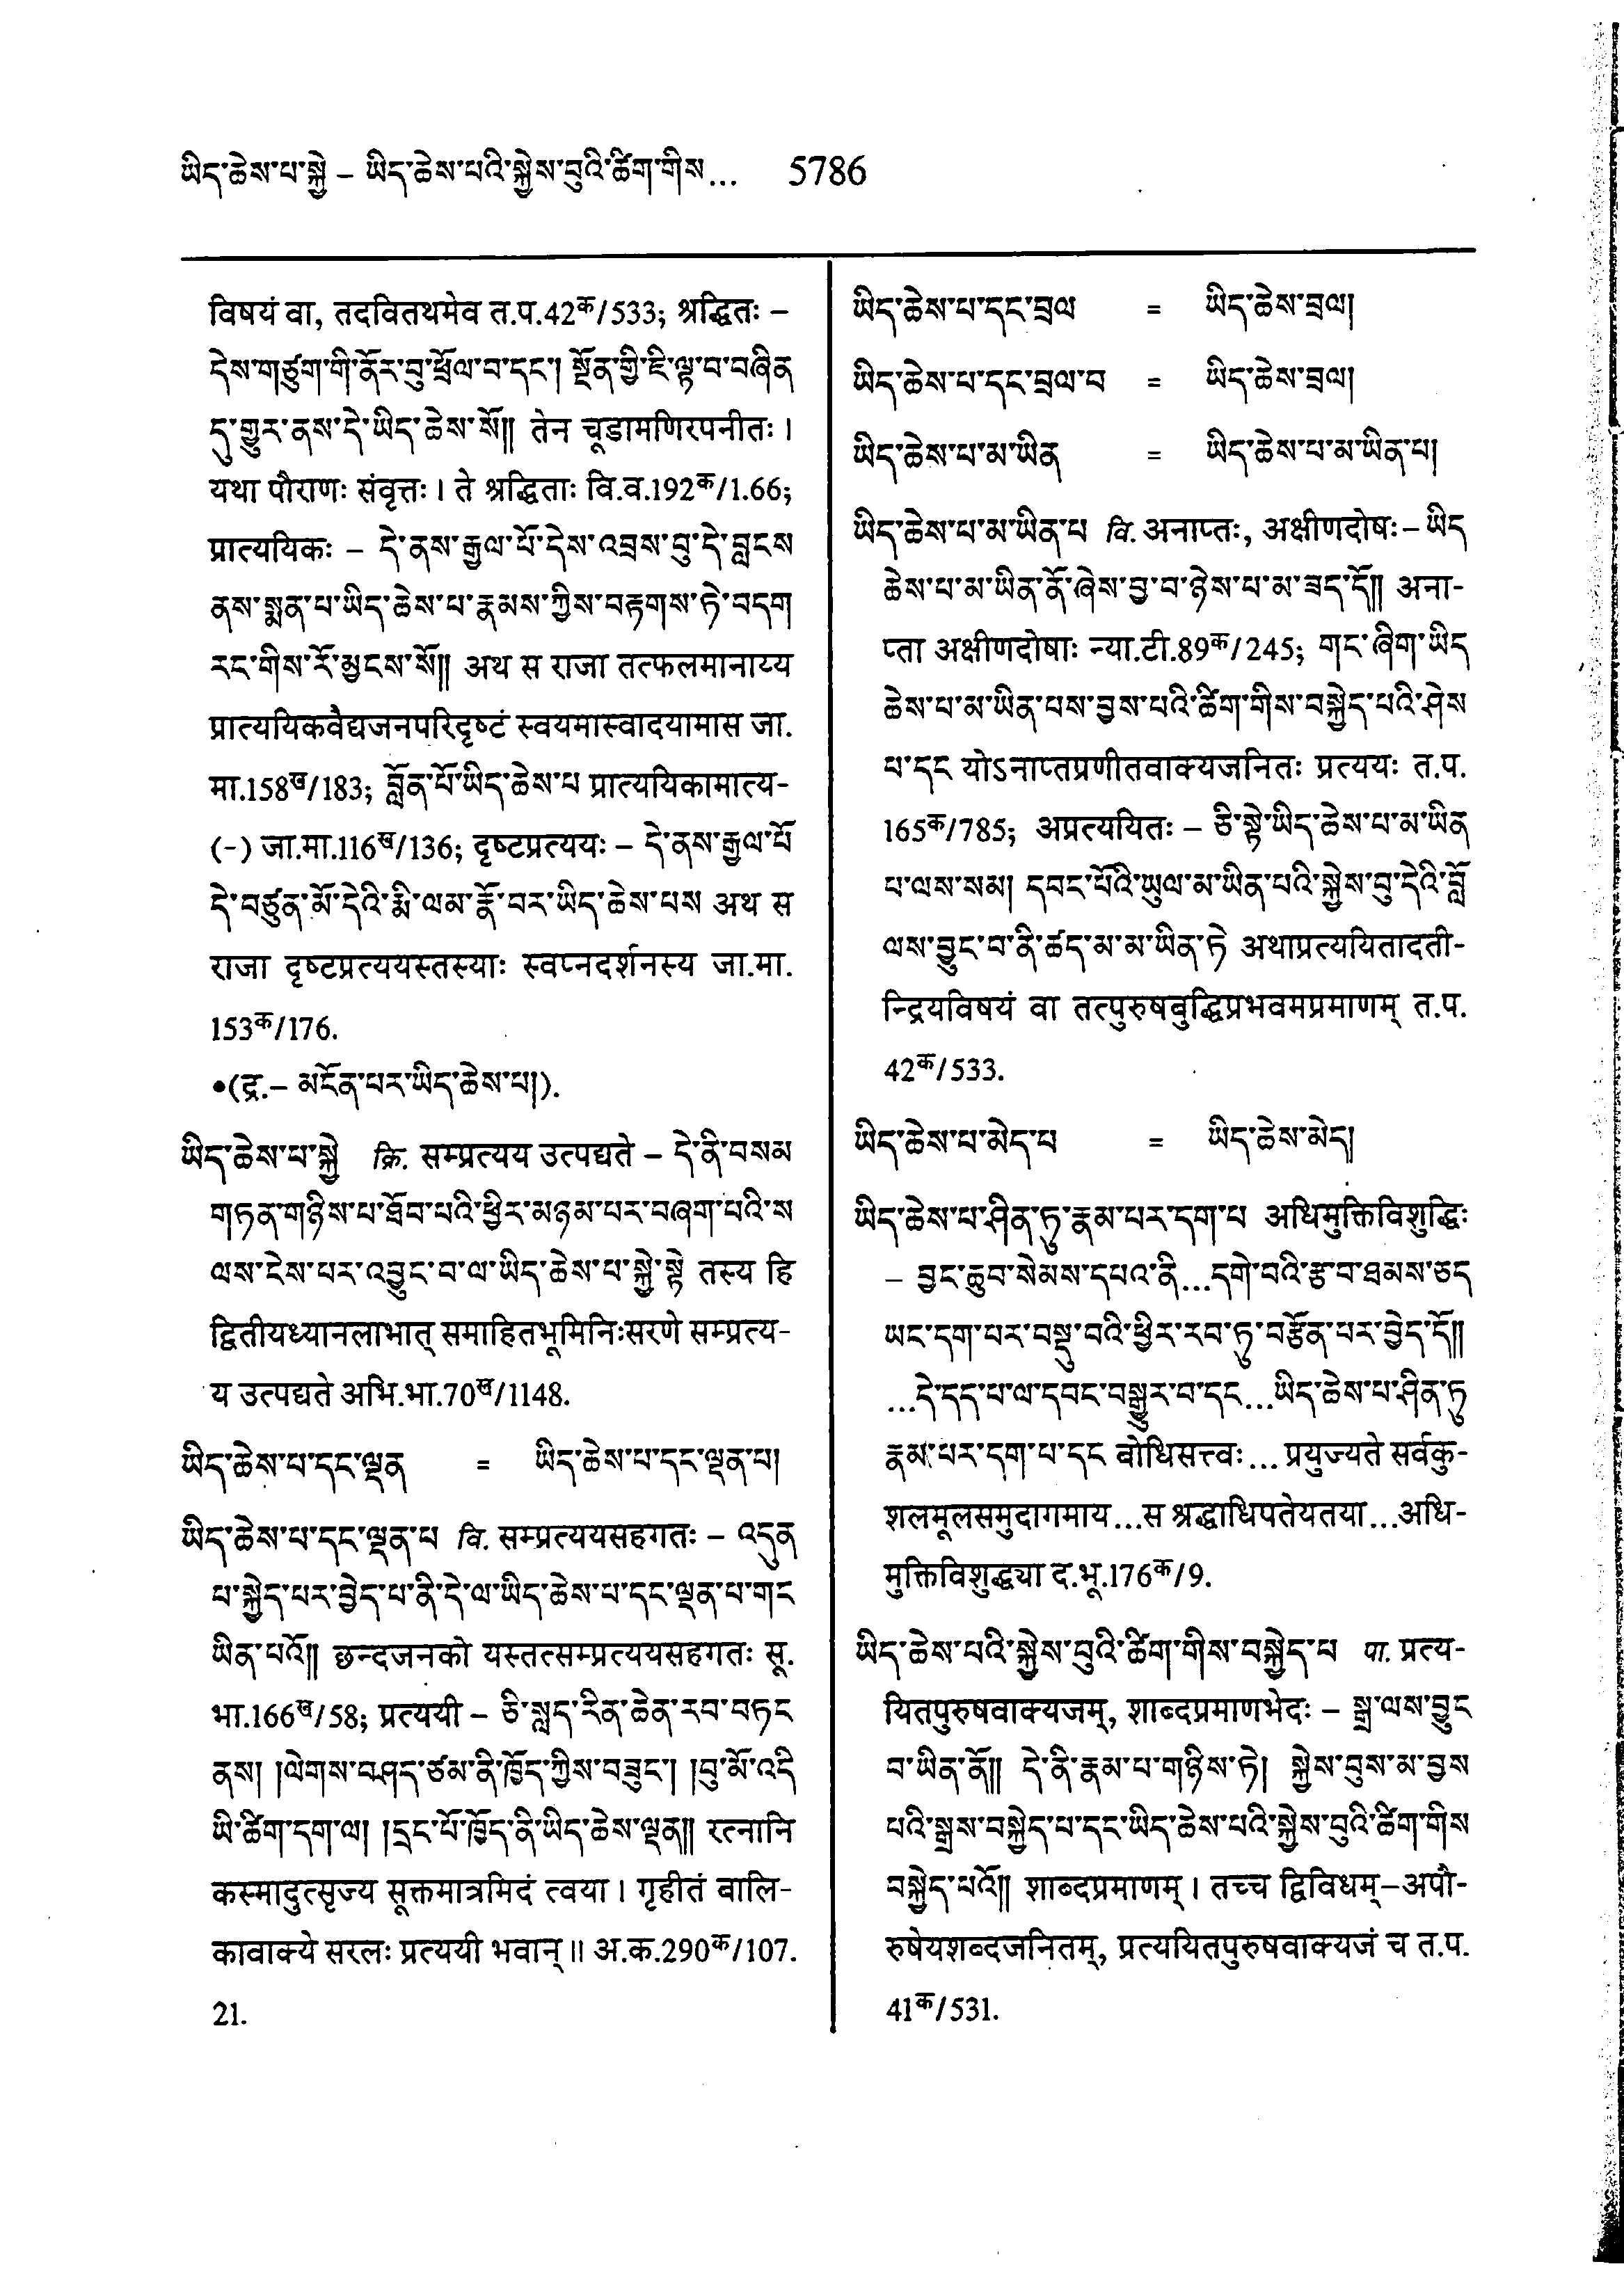 ཡིད་ཆེས་པ་སྐྱེ – ཡིད་ཆེས་པའི་སྐྱེས་བུའི་ཚིག་གིས... 5786
विषयं वा, तदवितथमेव त.प.42क/533; श्रद्धितः –
དེས་གཙུག་གི་ནོར་བུ་ཕྲོལ་བ་དང་། སྔོན་གྱི་ཇི་ལྟ་བ་བཞིན
དུ་གྱུར་ནས་དེ་ཡིད་ཆེས་སོ༎ तेन चूडामणिरपनीतः ।
यथा पौराणः संवृत्तः । ते श्रद्धिताः वि.व.192क/1.66;
प्रात्ययिकः – དེ་ནས་རྒྱལ་པོ་དེས་འབྲས་བུ་དེ་བླངས
ནས་སྨན་པ་ཡིད་ཆེས་པ་རྣམས་ཀྱིས་བརྟགས་ཏེ་བདག
རང་གིས་རོ་མྱངས་སོ༎ अथ स राजा तत्फलमानाय्य
प्रात्ययिकवैद्यजनपरिदृष्टं स्वयमास्वादयामास जा.
मा.158ख/183; བློན་པོ་ཡིད་ཆེས་པ प्रात्ययिकामात्य-
(-) जा.मा.116ख/136; दृष्टप्रत्ययः – དེ་ནས་རྒྱལ་པོ
དེ་བཙུན་མོ་དེའི་རྨི་ལམ་རྣོ་བར་ཡིད་ཆེས་པས अथ स
राजा दृष्टप्रत्ययस्तस्याः स्वप्नदर्शनस्य जा.मा.
153क/176.
•(द्र.– མངོན་པར་ཡིད་ཆེས་པ།).
ཡིད་ཆེས་པ་སྐྱེ क्रि. सम्प्रत्यय उत्पद्यते – དེ་ནི་བསམ
གཏན་གཉིས་པ་ཐོབ་པའི་ཕྱིར་མཉམ་པར་བཞག་པའི་ས
ལས་ངེས་པར་འབྱུང་བ་ལ་ཡིད་ཆེས་པ་སྐྱེ་སྟེ तस्य हि
द्वितीयध्यानलाभात् समाहितभूमिनिःसरणे सम्प्रत्य-
य उत्पद्यते अभि.भा.70ख/1148.
ཡིད་ཆེས་པ་དང་ལྡན = ཡིད་ཆེས་པ་དང་ལྡན་པ།
ཡིད་ཆེས་པ་དང་ལྡན་པ वि. सम्प्रत्ययसहगतः – འདུན
པ་སྐྱེད་པར་བྱེད་པ་ནི་དེ་ལ་ཡིད་ཆེས་པ་དང་ལྡན་པ་གང
ཡིན་པའོ༎ छन्दजनको यस्तत्सम्प्रत्ययसहगतः सू.
भा.166ख/58; प्रत्ययी – ཅི་སླད་རིན་ཆེན་རབ་བཏང
ནས། །ལེགས་བཤད་ཙམ་ནི་ཁྱོད་ཀྱིས་བཟུང་། །བུ་མོ་འདི
ཡི་ཚིག་དག་ལ། །དྲང་པོ་ཁྱོད་ནི་ཡིད་ཆེས་ལྡན༎ रत्नानि
कस्मादुत्सृज्य सूक्तमात्रमिदं त्वया । गृहीतं बालि-
कावाक्ये सरलः प्रत्ययी भवान् ॥ अ.क.290क/107.
21.
ཡིད་ཆེས་པ་དང་བྲལ = ཡིད་ཆེས་བྲལ།
ཡིད་ཆེས་པ་དང་བྲལ་བ = ཡིད་ཆེས་བྲལ།
ཡིད་ཆེས་པ་མ་ཡིན = ཡིད་ཆེས་པ་མ་ཡིན་པ།
ཡིད་ཆེས་པ་མ་ཡིན་པ वि. अनाप्तः, अक्षीणदोषः – ཡིད
ཆེས་པ་མ་ཡིན་ནོ་ཞེས་བྱ་བ་ཉེས་པ་མ་ཟད་དོ༎ अना-
प्ता अक्षीणदोषाः न्या.टी.89क/245; གང་ཞིག་ཡིད
ཆེས་པ་མ་ཡིན་པས་བྱས་པའི་ཚིག་གིས་བསྐྱེད་པའི་ཤེས
པ་དང योऽनाप्तप्रणीतवाक्यजनितः प्रत्ययः त.प.
165क/785; अप्रत्ययितः – ཅི་སྟེ་ཡིད་ཆེས་པ་མ་ཡིན
པ་ལས་སམ། དབང་པོའི་ཡུལ་མ་ཡིན་པའི་སྐྱེས་བུ་དེའི་བློ
ལས་བྱུང་བ་ནི་ཚད་མ་མ་ཡིན་ཏེ अथाप्रत्ययितादती-
न्द्रियविषयं वा तत्पुरुषबुद्धिप्रभवमप्रमाणम् त.प.
42क/533.
ཡིད་ཆེས་པ་མེད་པ = ཡིད་ཆེས་མེད།
ཡིད་ཆེས་པ་ཤིན་ཏུ་རྣམ་པར་དག་པ अधिमुक्तिविशुद्धिः
– བྱང་ཆུབ་སེམས་དཔའ་ནི...དགེ་བའི་རྩ་བ་ཐམས་ཅད
ཡང་དག་པར་བསྡུ་བའི་ཕྱིར་རབ་ཏུ་བརྩོན་པར་བྱེད་དོ༎
...དེ་དད་པ་ལ་དབང་བསྒྱུར་བ་དང...ཡིད་ཆེས་པ་ཤིན་ཏུ
རྣམ་པར་དག་པ་དང बोधिसत्त्वः... प्रयुज्यते सर्वकु-
शलमूलसमुदागमाय...स श्रद्धाधिपतेयतया...अधि-
मुक्तिविशुद्ध्या द.भू.176क/9.
ཡིད་ཆེས་པའི་སྐྱེས་བུའི་ཚིག་གིས་བསྐྱེད་པ पा. प्रत्य-
यितपुरुषवाक्यजम्, शाब्दप्रमाणभेदः – སྒྲ་ལས་བྱུང
བ་ཡིན་ནོ༎ དེ་ནི་རྣམ་པ་གཉིས་ཏེ། སྐྱེས་བུས་མ་བྱས
པའི་སྒྲས་བསྐྱེད་པ་དང་ཡིད་ཆེས་པའི་སྐྱེས་བུའི་ཚིག་གིས
བསྐྱེད་པའོ༎ शाब्दप्रमाणम् । तच्च द्विविधम्–अपौ-
रुषेयशब्दजनितम्, प्रत्ययितपुरुषवाक्यजं च त.प.
41क/531.